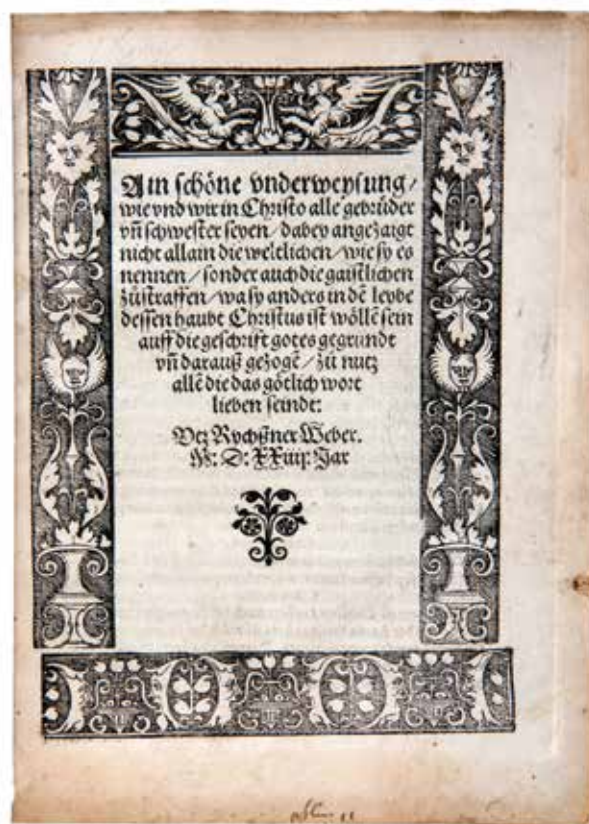 Ain schöne vnderweysung /
wie vnd wir in Christo alle gebrüder
vñ schwester seyen / dabey angezaigt
nicht allain die weltlichen / wie sy es
nennen / sonder auch die gaistlichen
zůstraffen / wa sy anders in dē leybe
dessen haubt Christus ist wöllē sein
auff die geschrift gotes gegrundt
vñ darauß gezogē / zů nutz
allē die das götlich wort
lieben seindt:
Vtz Rychßner Weber.
M: D: XXiiij: Jar